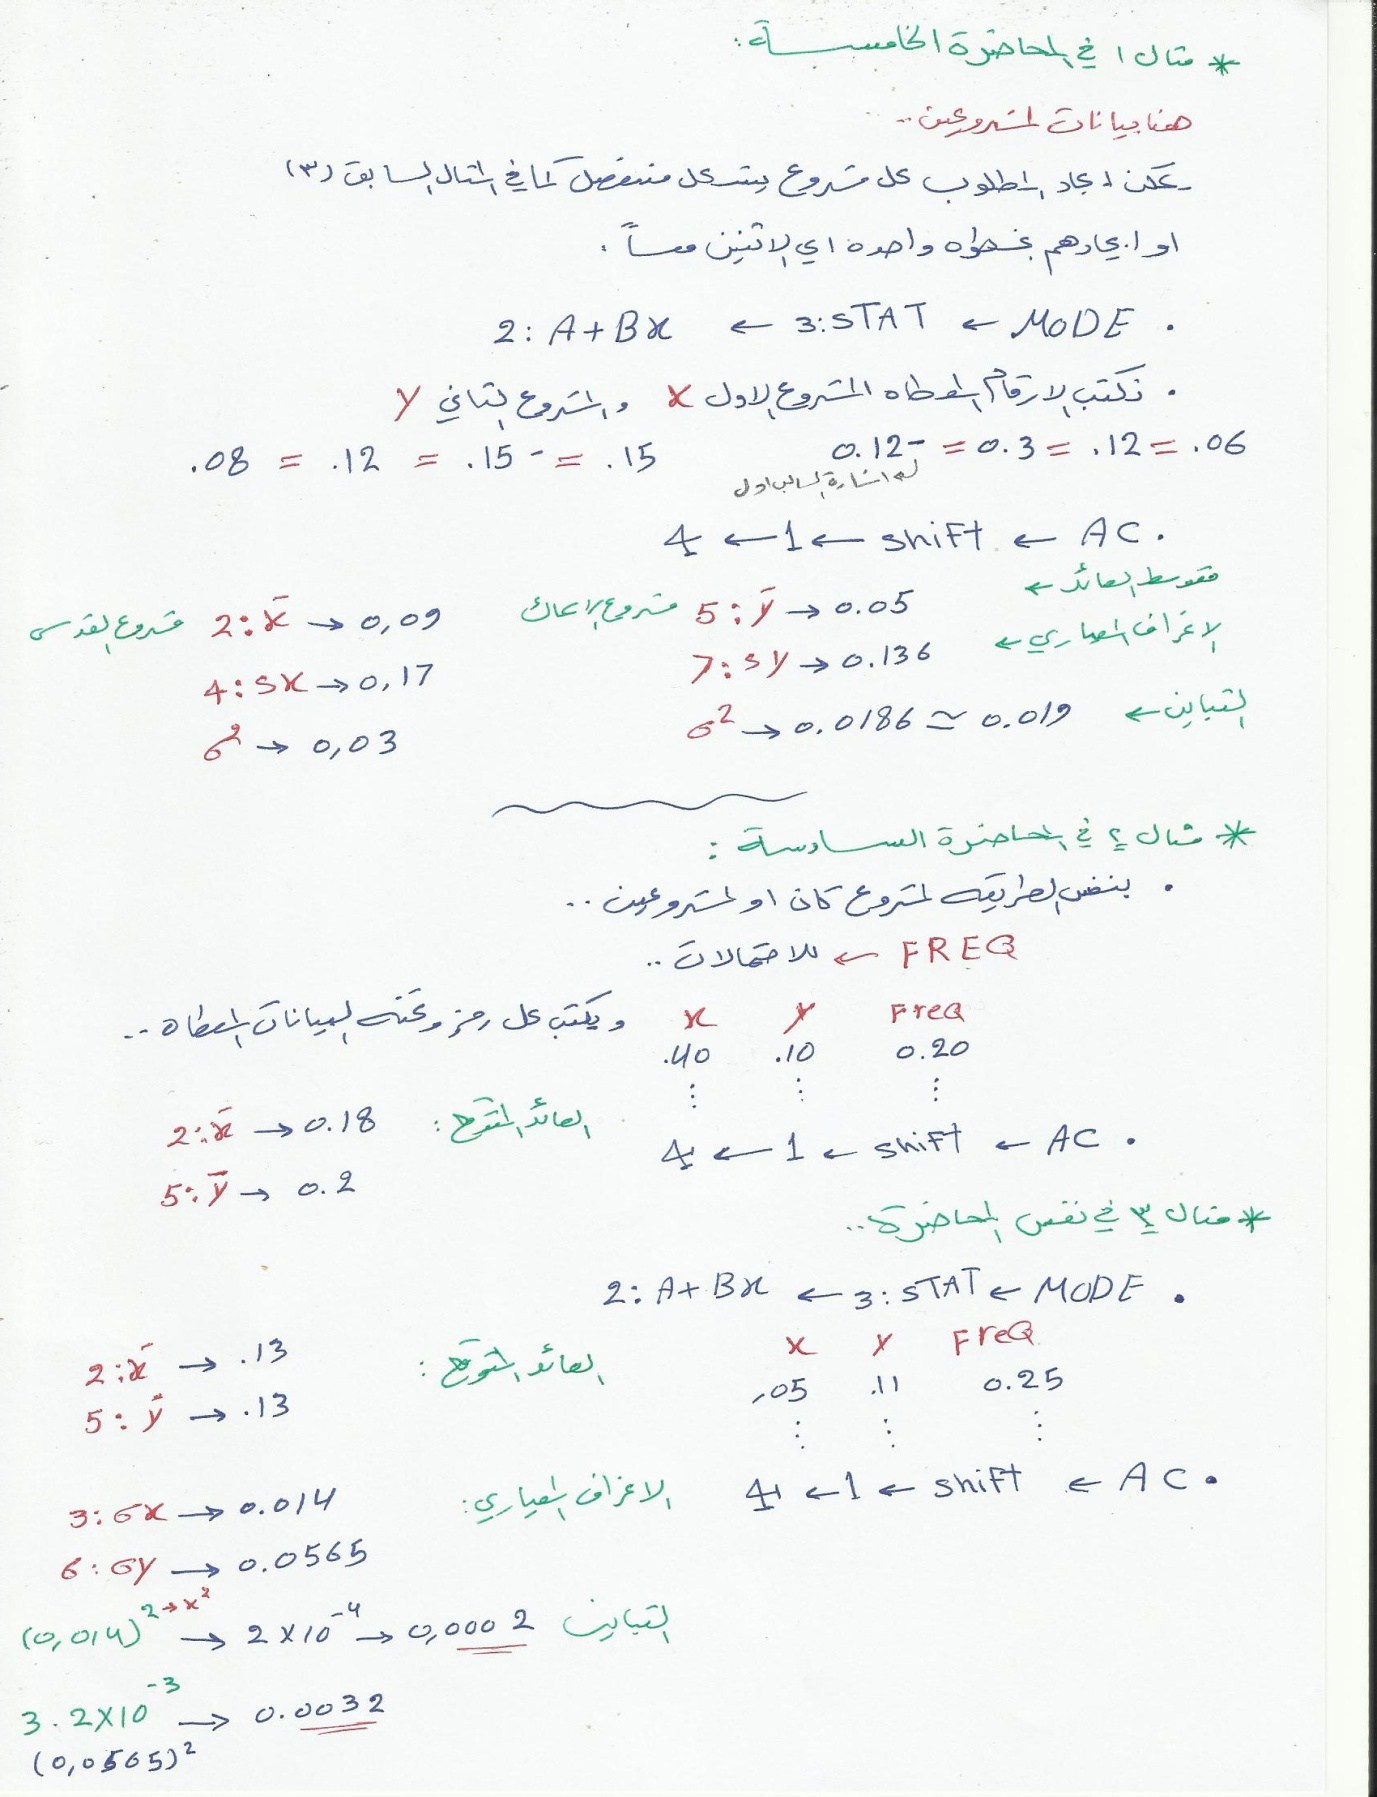 * مثال ١ في المحاضرة الخامسة:
هنا بيانات لمشروعين..
يمكن ايجاد المطلوب كل مشروع بشكل منفصل كما في المثال السابق (٣)
او ايجادهم بخطوه واحده اي الاثنين معاً .
. MODE ← 3:STAT ← 2: A+Bx
. نكتب الارقام المعطاه المشروع الاول x والمشروع الثاني y
.06 = .12 = 0.3 = 0.12-
.15 = .15- = .12 = .08
له اشارة السالب اول
. AC ← shift ← 1 ← 4
متوسط العائد ← 5: ȳ → 0.05 مشروع الاعمال 2: x̄ → 0,09 مشروع القدس
الانحراف المعياري ← 7: sy → 0.136 4: sx → 0,17
التباين ← σ² → 0.0186 ≃ 0.019 σ² → 0,03
* مثال ٢ في المحاضرة السادسة :
. بنفس الطريقه لمشروع كان او لمشروعين ..
FREQ ← للاحتمالات ..
x y FreQ ويكتب كل رمز وتحته البيانات المعطاه ..
.40 .10 0.20
⋮ ⋮ ⋮
. AC ← shift ← 1 ← 4
العائد المتوقع : 2: x̄ → 0.18
5: ȳ → 0.2
* مثال ٣ في نفس المحاضرة..
. MODE ← 3: STAT ← 2: A+Bx
x y FreQ
.05 .11 0.25
⋮ ⋮ ⋮
العائد المتوقع : 2: x̄ → .13
5: ȳ → .13
. AC ← shift ← 1 ← 4
الانحراف المعياري: 3: σx → 0.014
6: σy → 0.0565
التباين (0,014)² → x² → 2×10⁻⁴ → 0,0002
3.2×10⁻³ → 0.0032
(0,0565)²